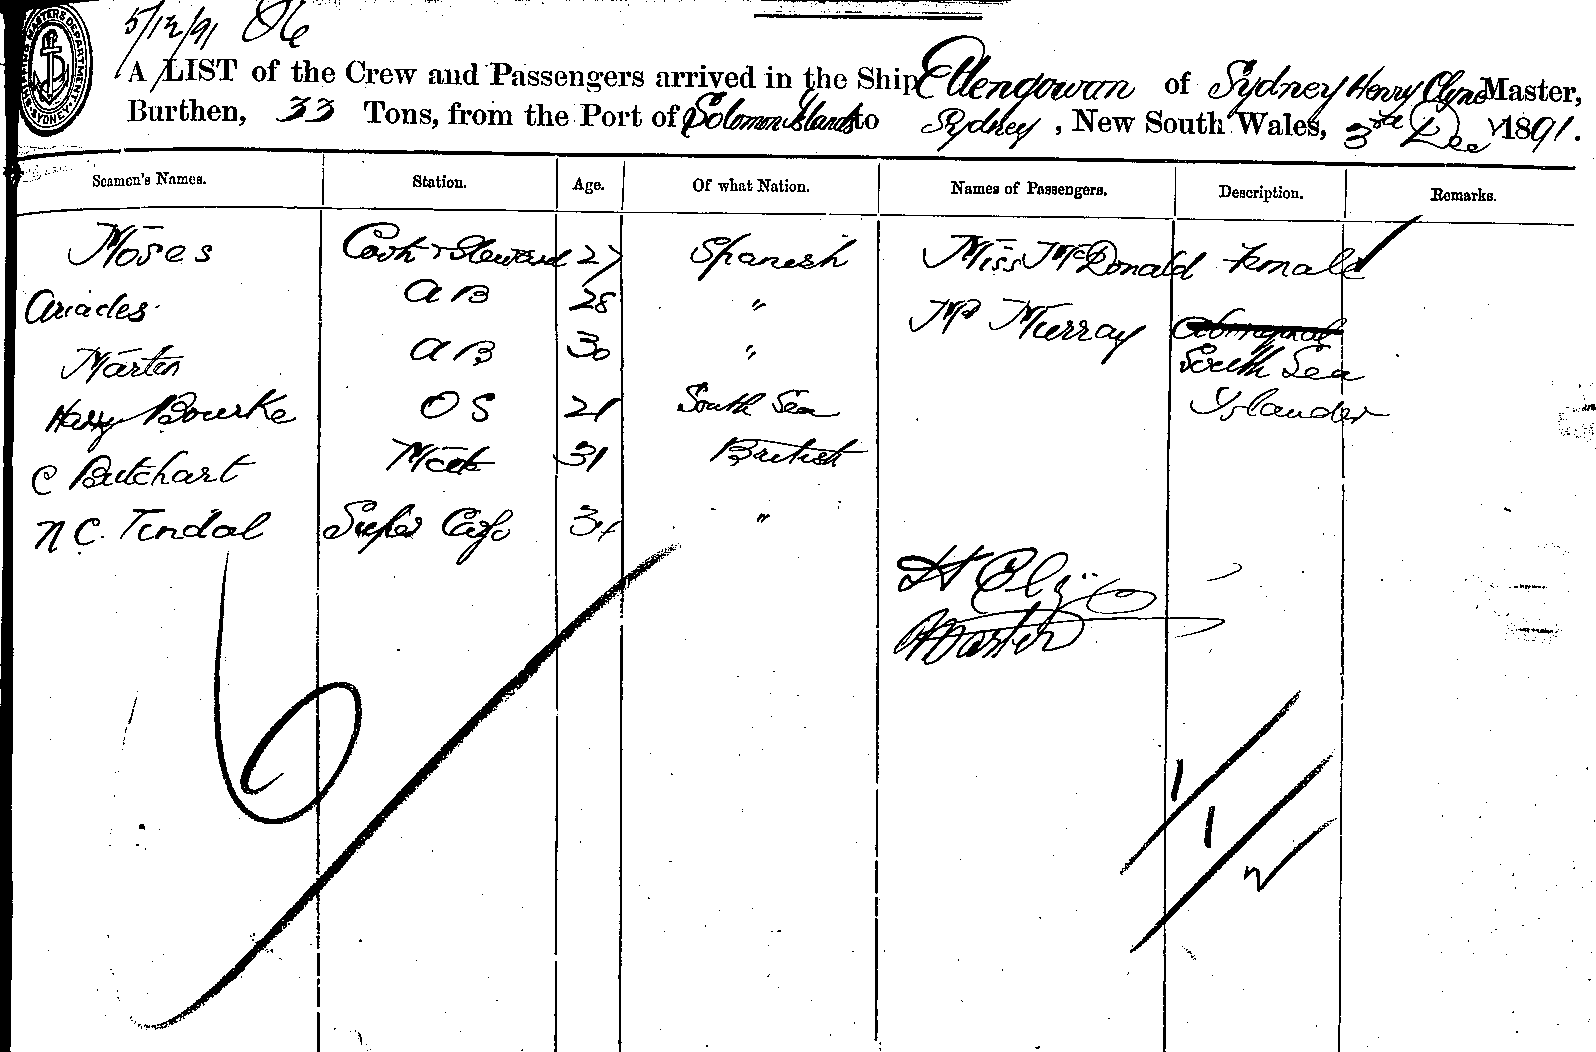 5/12/91
A LIST of the Crew and Passengers arrived in the Ship Ellengowan of Sydney Henry Clyne Master,
Burthen, 33 Tons, from the Port of Solomon Islands to Sydney, New South Wales, 3rd Dec 1891.
Seamen's Names. Station. Age. Of what Nation. Names of Passengers. Description. Remarks.
Moses Cook & Steward 27 Spanish Miss McDonald Female
Aricides A B 28 " Mr Murray Aboriginal
Martin A B 30 " South Sea
Harry Bourke O S 21 South Sea Islander
C Butchart Mate 31 British
N C. Tindal Super Cargo 34 "
H Clyne
Master
6
1
1
2